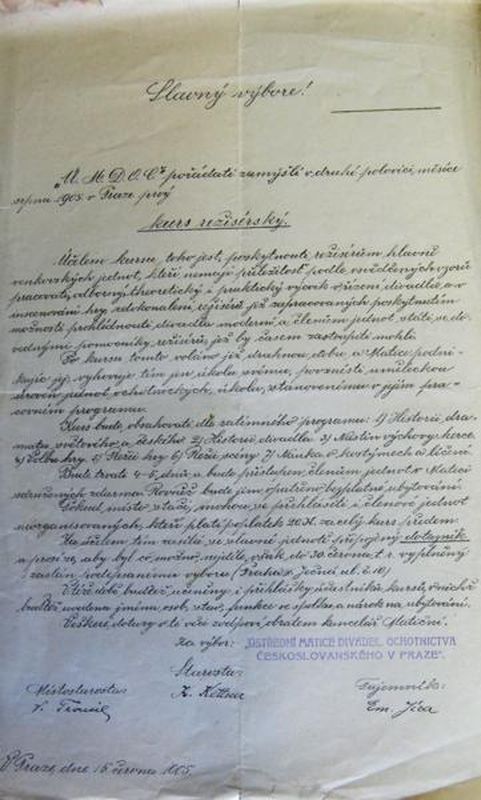 Slavný výbore!
„Ú. M. D. O. Č." pořádati zamýšlí v druhé polovici měsíce
srpna 1905 v Praze prvý
kurs režisérský.
Účelem kursu toho jest, poskytnouti režisérům hlavně
venkovských jednot, kteří nemají příležitosti podle osvědčených vzorů
pracovati, odborný theoretický i praktický výcvik v řízení divadla, a v
inscenování hry, zdokonalení režisérů již zapracovaných poskytnutím
možnosti prohlédnouti divadla moderní, a členům jednot státi se do-
vednými pomocníky režisérů, jež by časem zastoupiti mohli.
Po kursu tomto voláno již drahnou dobu, a Matice podni-
kajíc jej, vyhovuje tím jen úkolu svému, povznésti uměleckou
úroveň jednot ochotnických, úkolu, stanovenému v jejím pra-
covním programu.
Kurs bude obsahovati dle zatímního programu: 1) Historii dra-
matu světového a českého 2) Historii divadla 3) Nástin výchovy herce
4) Volba hry, 5) Režii hry 6) Režii scény 7) Nauka o kostymech a líčení.
Bude trvati 4-5 dnů a bude přístupen členům jednot v Matici
sdružených zdarma. Rovněž bude jim opatřeno bezplatné ubytování.
Pokud místo stačí, mohou se přihlásiti i členové jednot
neorganisovaných, kteří platí poplatek 20 K za celý kurs předem.
Za účelem tím zasílá se slavné jednotě připojený dotazník
a prosí se, aby byl co možno nejdříve, však do 30. června t. r. vyplněný
zaslán podepsanému výboru (Praha, Ječná ul. č. 10)
V téže době buďtež učiněny i přihlášky účastníků kursu, v nichž
buďtež uvedena jména osob, stav, funkce ve spolku a nárok na ubytování.
Veškeré dotazy v té věci zodpoví obratem kancelář Matiční.
Za výbor:
„ÚSTŘEDNÍ MATICE DIVADEL. OCHOTNICTVA
ČESKOSLOVANSKÉHO V PRAZE".
Starosta:
Místostarosta:
Tajemník:
Em. Jira
V Praze, dne 16 června 1905.